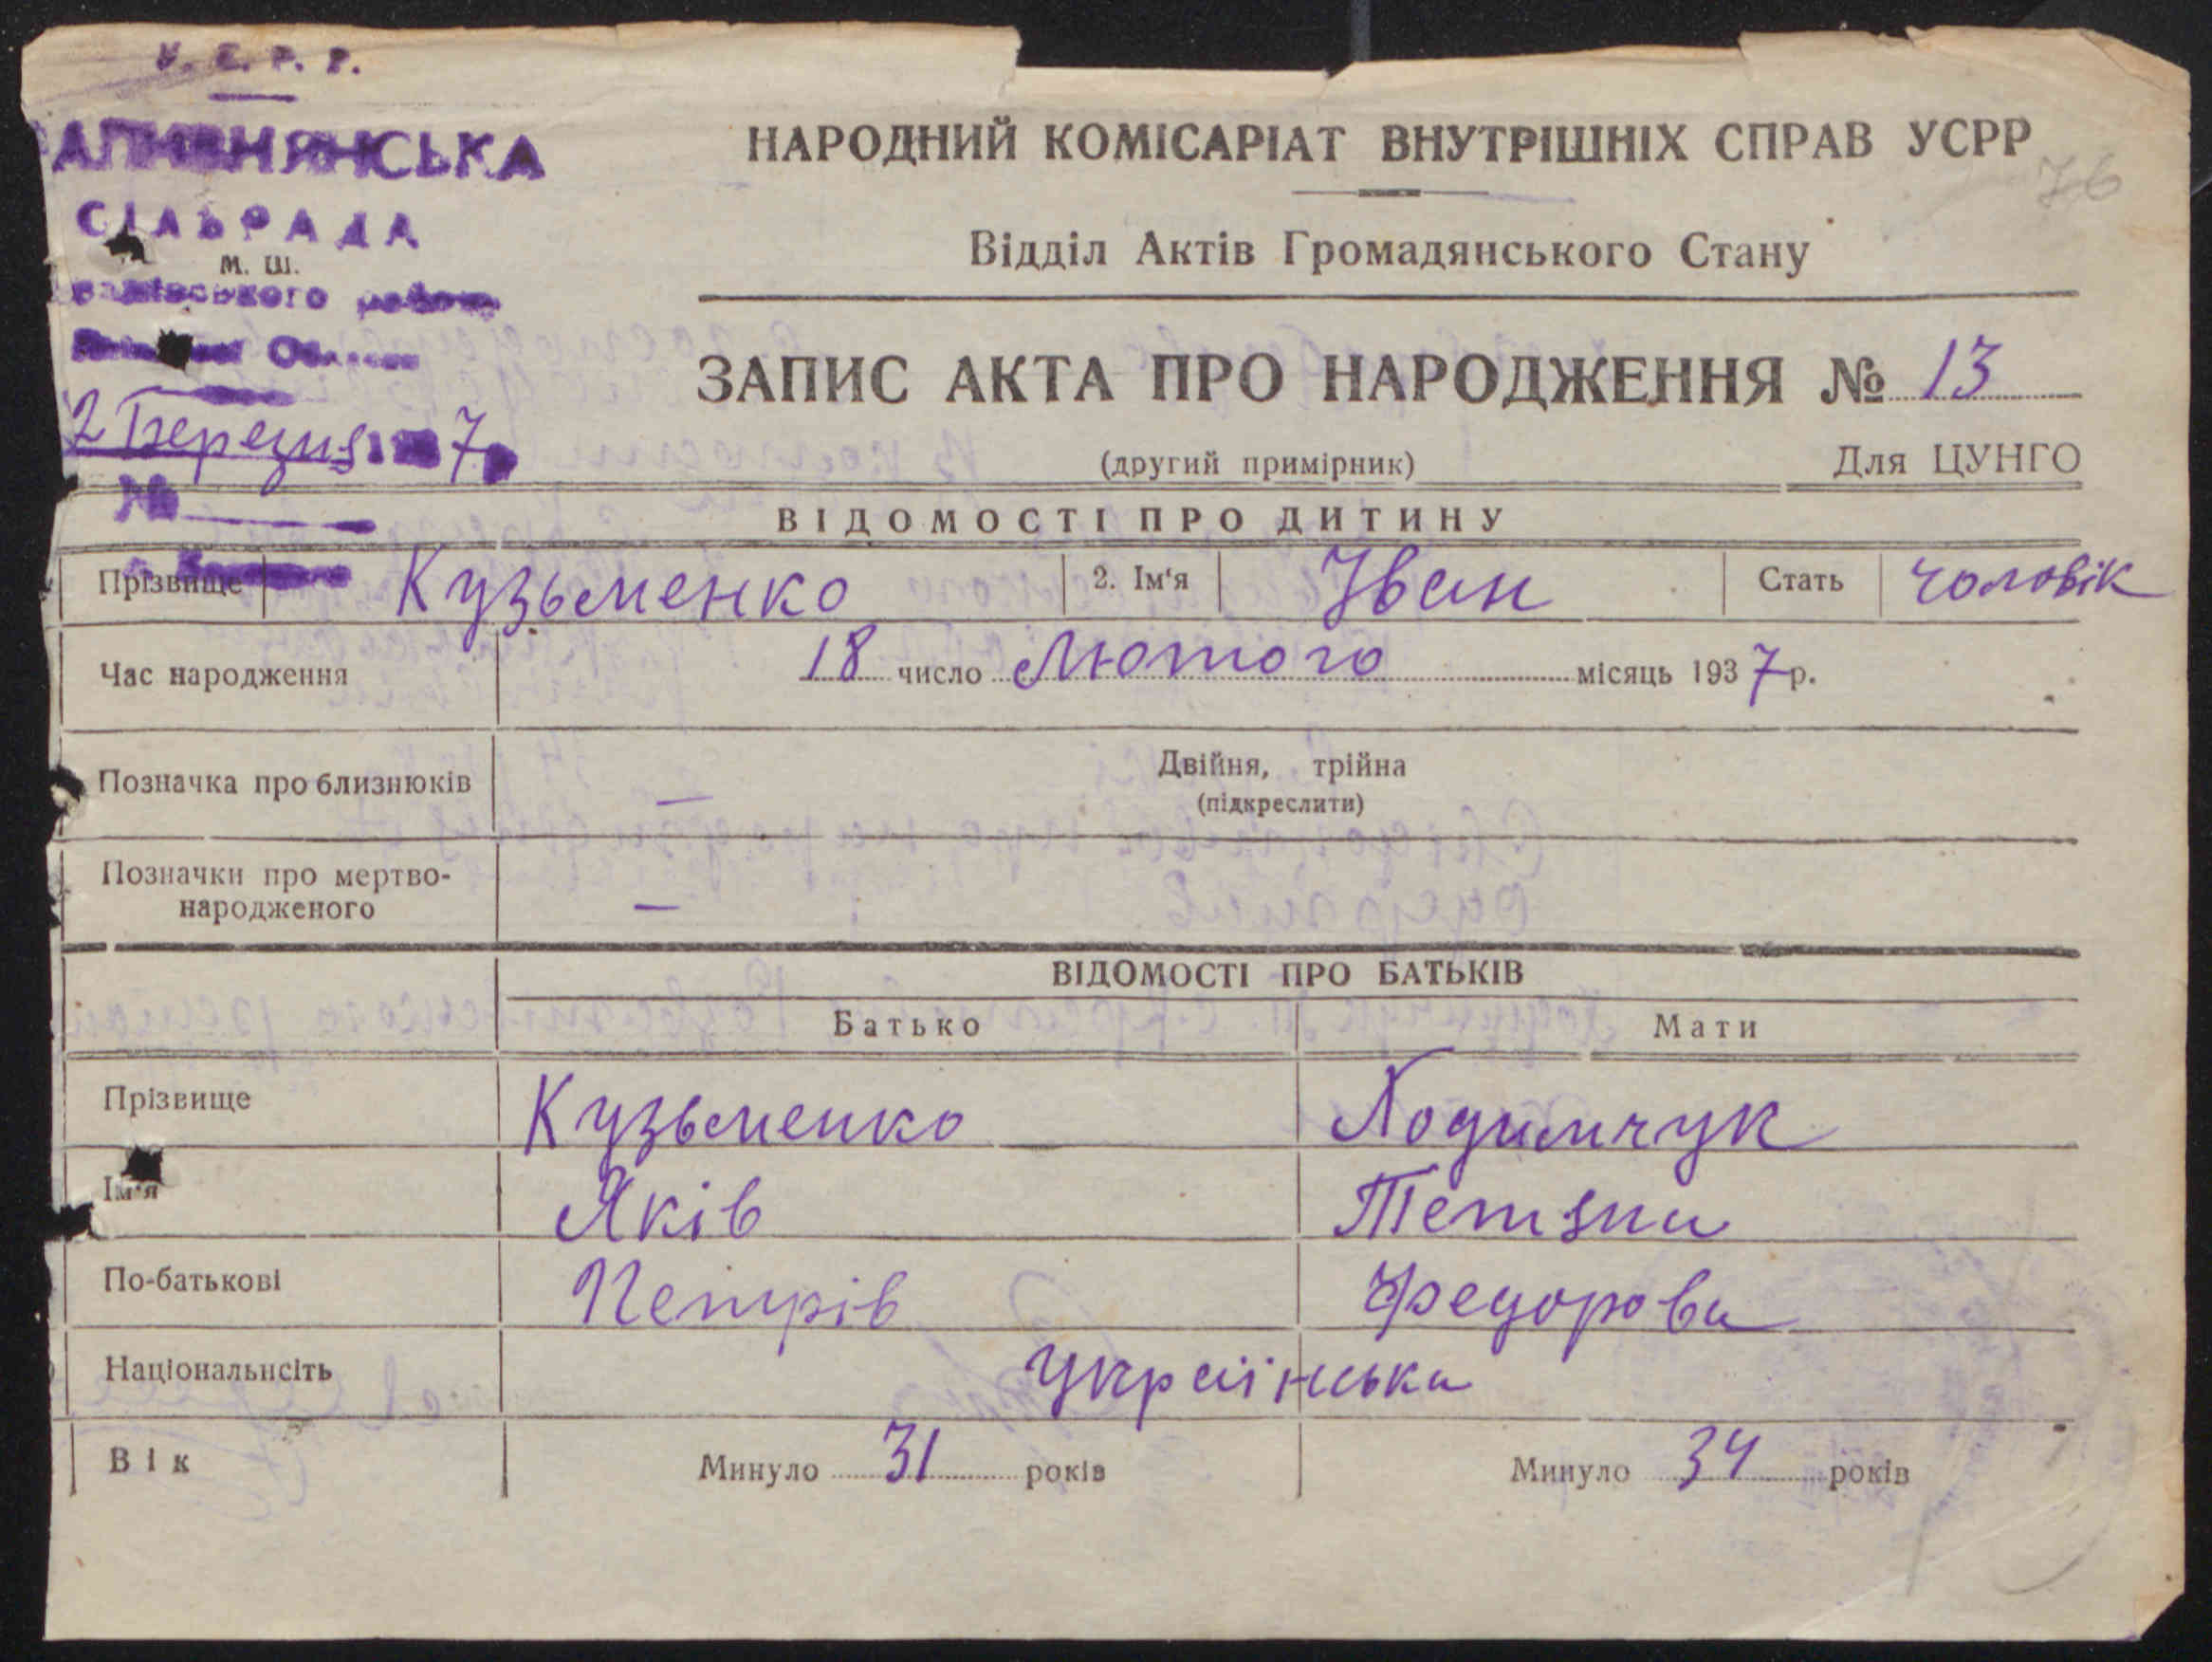 У. С. Р. Р.
СІЛЬРАДА
М. Ш.
2 Березня 1937р
№
НАРОДНИЙ КОМІСАРІАТ ВНУТРІШНІХ СПРАВ УСРР
76
Відділ Актів Громадянського Стану
ЗАПИС АКТА ПРО НАРОДЖЕННЯ № 13
(другий примірник) Для ЦУНГО
ВІДОМОСТІ ПРО ДИТИНУ
Прізвище Кузьменко 2. Ім'я Іван Стать чоловік
Час народження 18 число Лютого місяць 1937р.
Позначка про близнюків — Двійня, трійна
(підкреслити)
Позначки про мертво-
народженого —
ВІДОМОСТІ ПРО БАТЬКІВ
Батько Мати
Прізвище Кузьменко Лодимчук
Ім'я Яків Тетяна
По-батькові Петрів Федорова
Національнсіть Українська
Вік Минуло 31 років Минуло 34 років